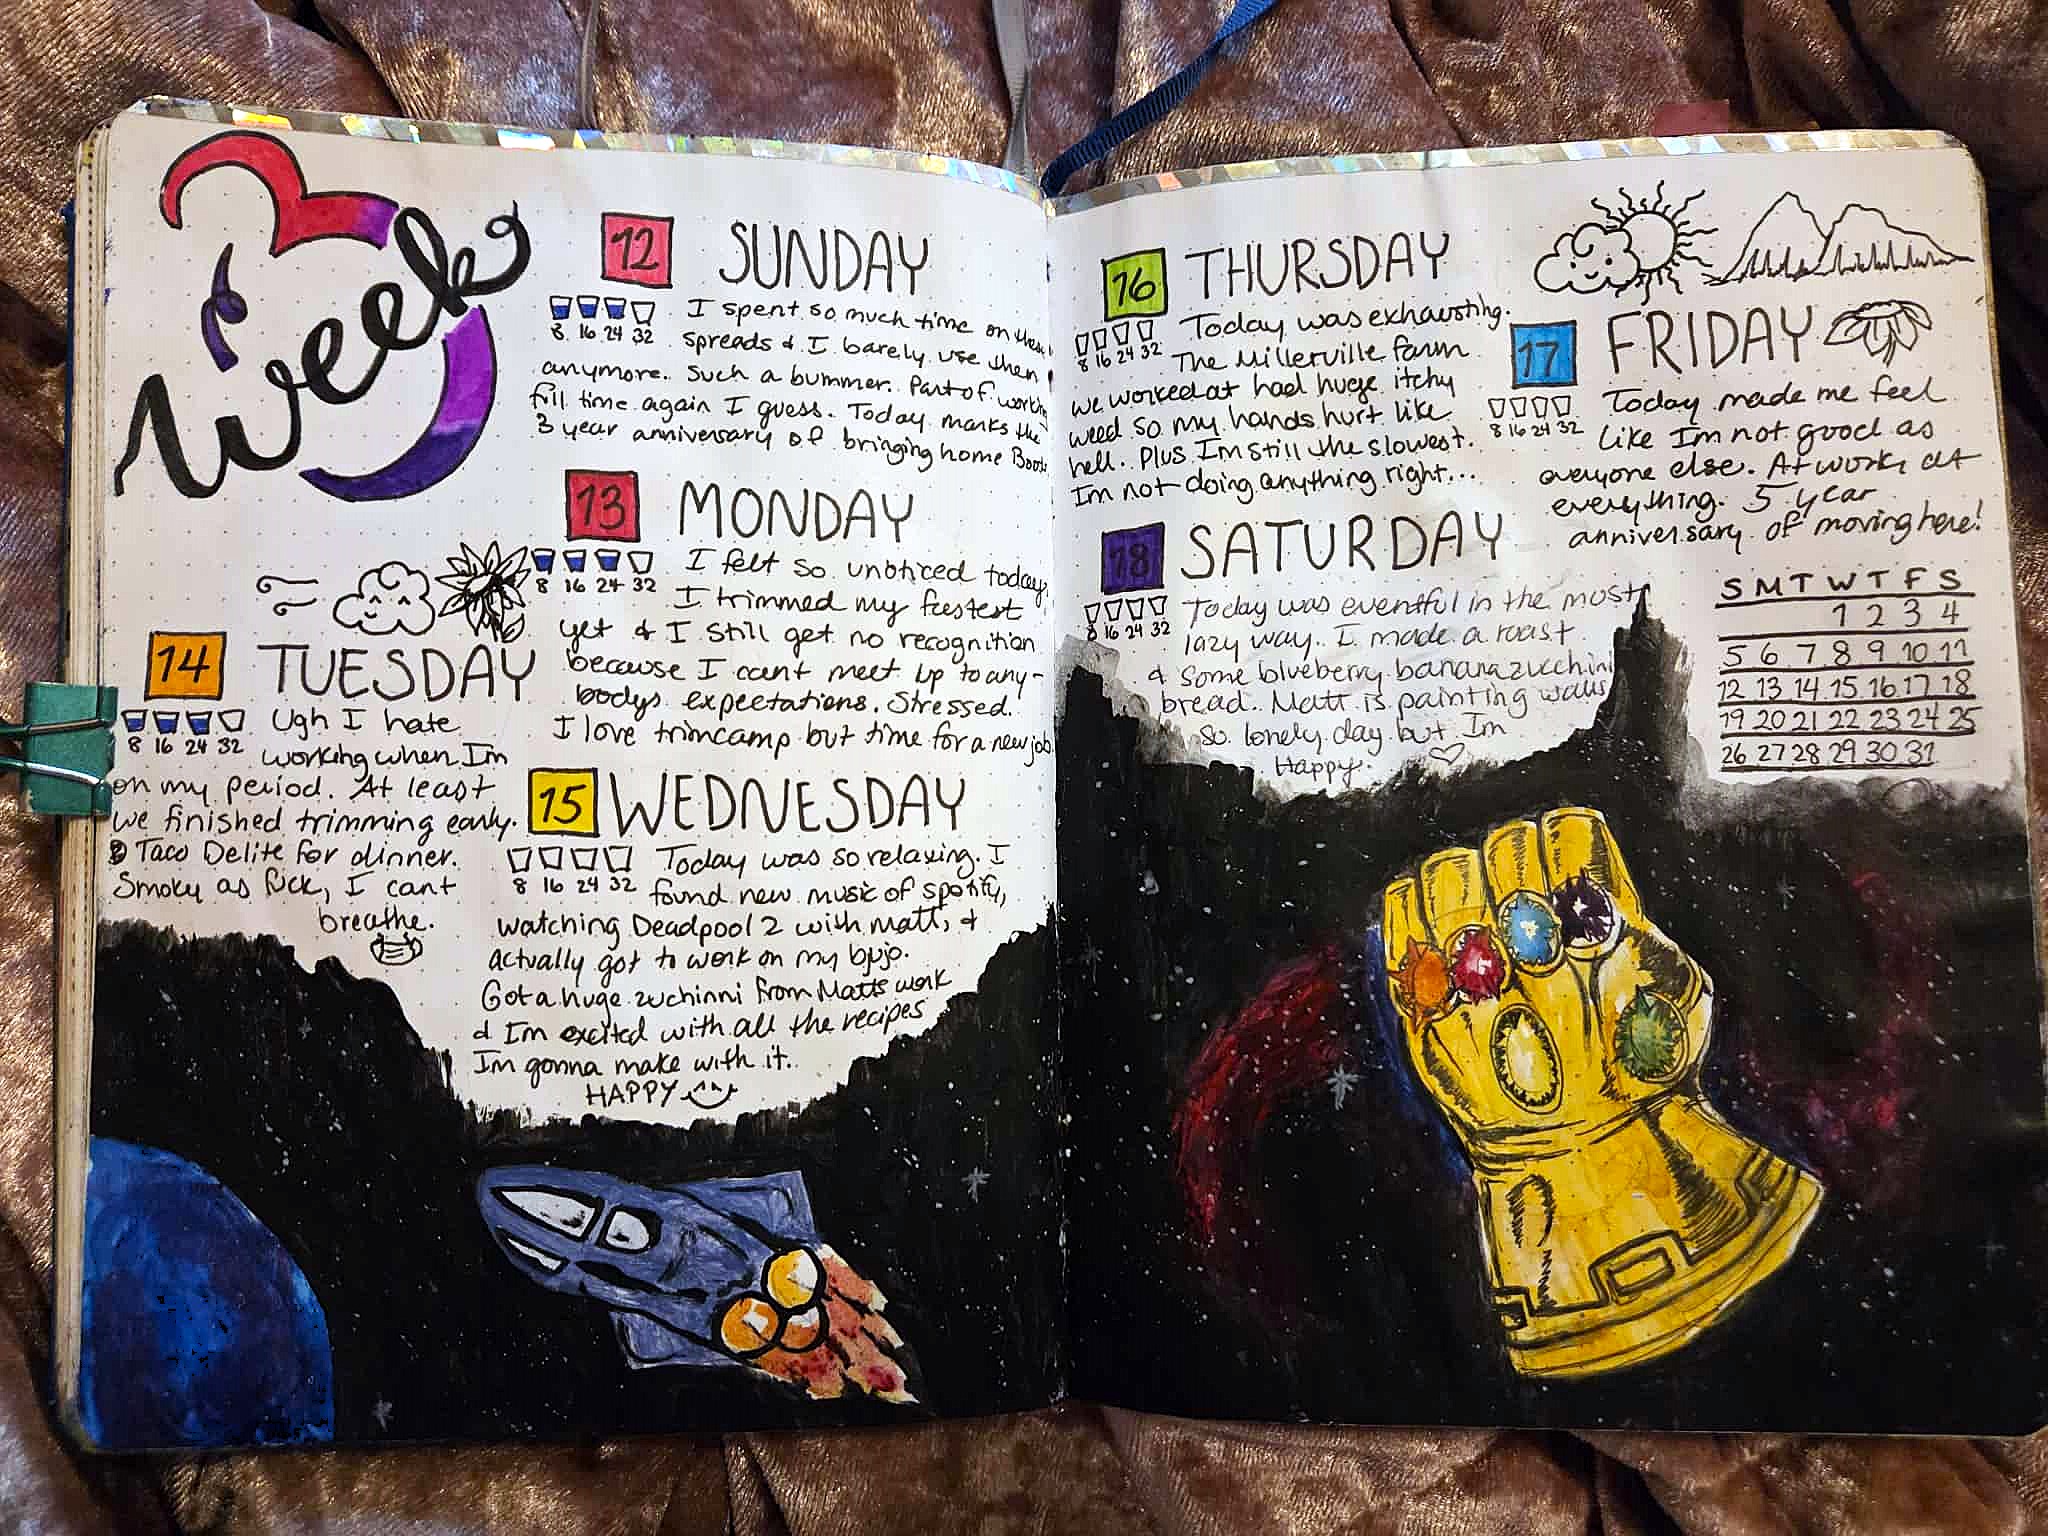 Week 3
12 SUNDAY
8 16 24 32
I spent so much time on these
spreads & I barely use them
anymore. Such a bummer. Part of working
full time again I guess. Today marks the
3 year anniversary of bringing home
13 MONDAY
8 16 24 32
I felt so unoticed today,
I trimmed my fastest
yet & I still get no recognition
because I can't meet up to any-
bodys expectations. Stressed.
I love trimcamp but time for a new job
14 TUESDAY
8 16 24 32
Ugh I hate
working when I'm
on my period. At least
we finished trimming early.
Taco Delite for dinner.
Smoky as fuck, I cant
breathe.
15 WEDNESDAY
8 16 24 32
Today was so relaxing. I
found new music of spotify,
watching Deadpool 2 with Matt, &
actually got to work on my bujo.
Got a huge zuchinni from Matts work
& I'm excited with all the recipes
I'm gonna make with it.
HAPPY
16 THURSDAY
8 16 24 32
Today was exhausting.
The Millerville farm
we worked at had huge itchy
weed so my hands hurt like
hell. Plus I'm still the slowest.
I'm not doing anything right...
17 FRIDAY
8 16 24 32
Today made me feel
like I'm not good as
everyone else. At work, at
everything. 5 year
anniversary of moving here!
18 SATURDAY
8 16 24 32
Today was eventful in the most
lazy way. I made a roast
& some blueberry banana zucchini
bread. Matt is painting walls
so lonely day but I'm
Happy.
S M T W T F S
1 2 3 4
5 6 7 8 9 10 11
12 13 14 15 16 17 18
19 20 21 22 23 24 25
26 27 28 29 30 31